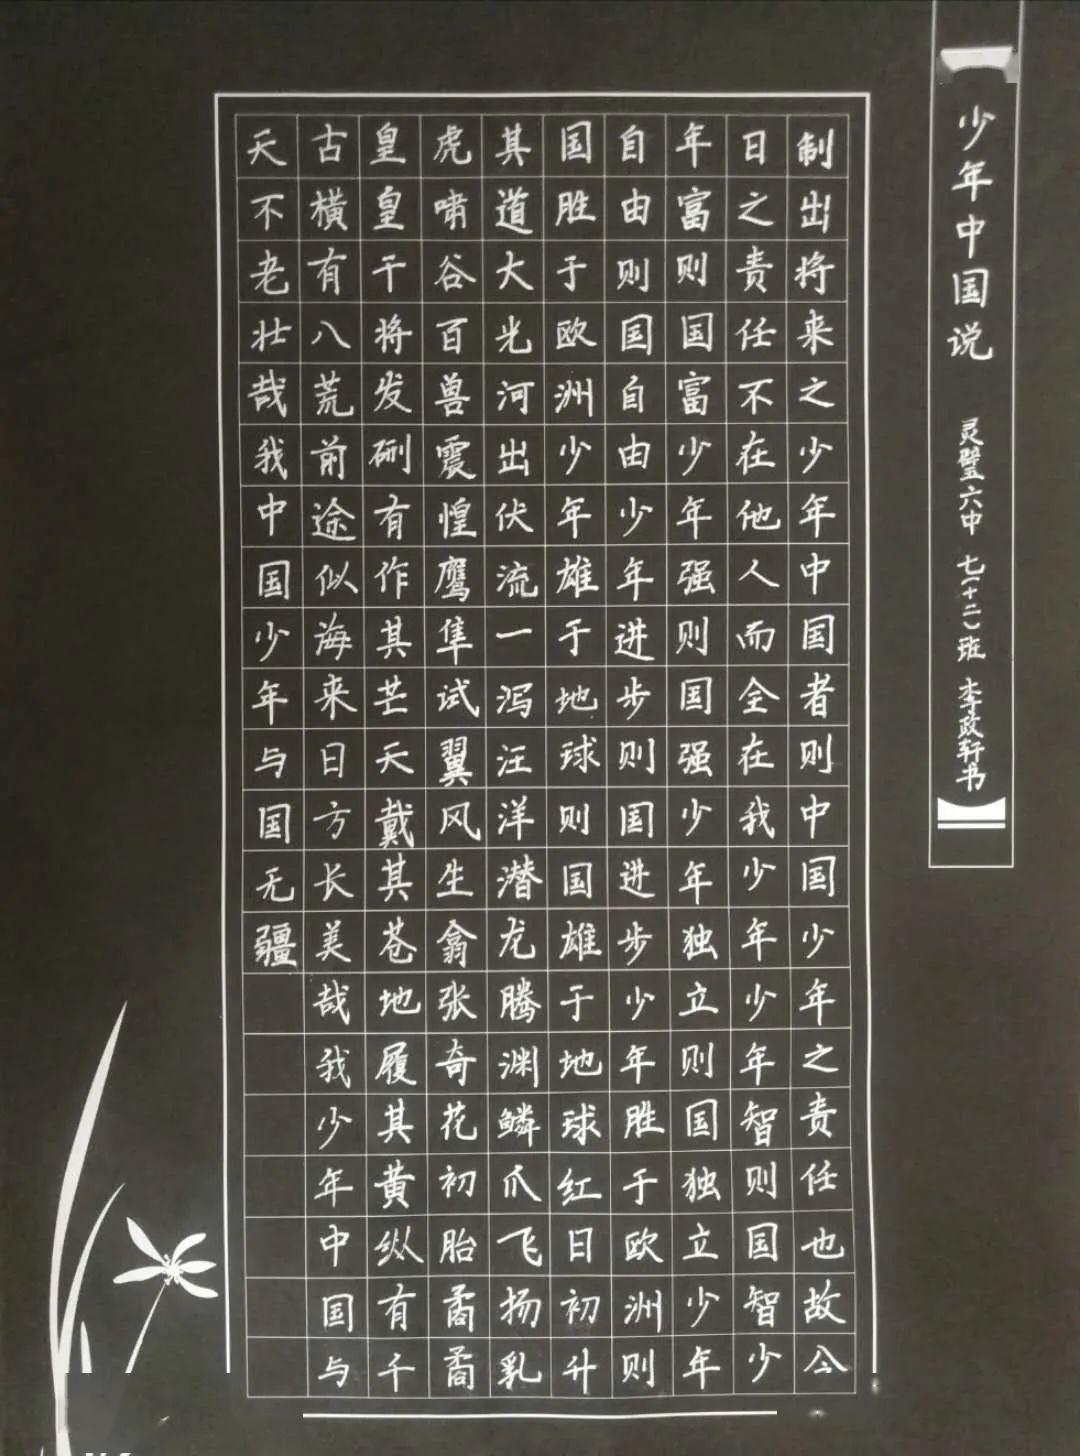 少年中国说 灵璧六中 七(十二)班 李政轩书
制出将来之少年中国者则中国少年之责任也故今
日之责任不在他人而全在我少年少年智则国智少
年富则国富少年强则国强少年独立则国独立少年
自由则国自由少年进步则国进步少年胜于欧洲则
国胜于欧洲少年雄于地球则国雄于地球红日初升
其道大光河出伏流一泻汪洋潜龙腾渊鳞爪飞扬乳
虎啸谷百兽震惶鹰隼试翼风生翕张奇花初胎矞矞
皇皇干将发硎有作其芒天戴其苍地履其黄纵有千
古横有八荒前途似海来日方长美哉我少年中国与
天不老壮哉我中国少年与国无疆